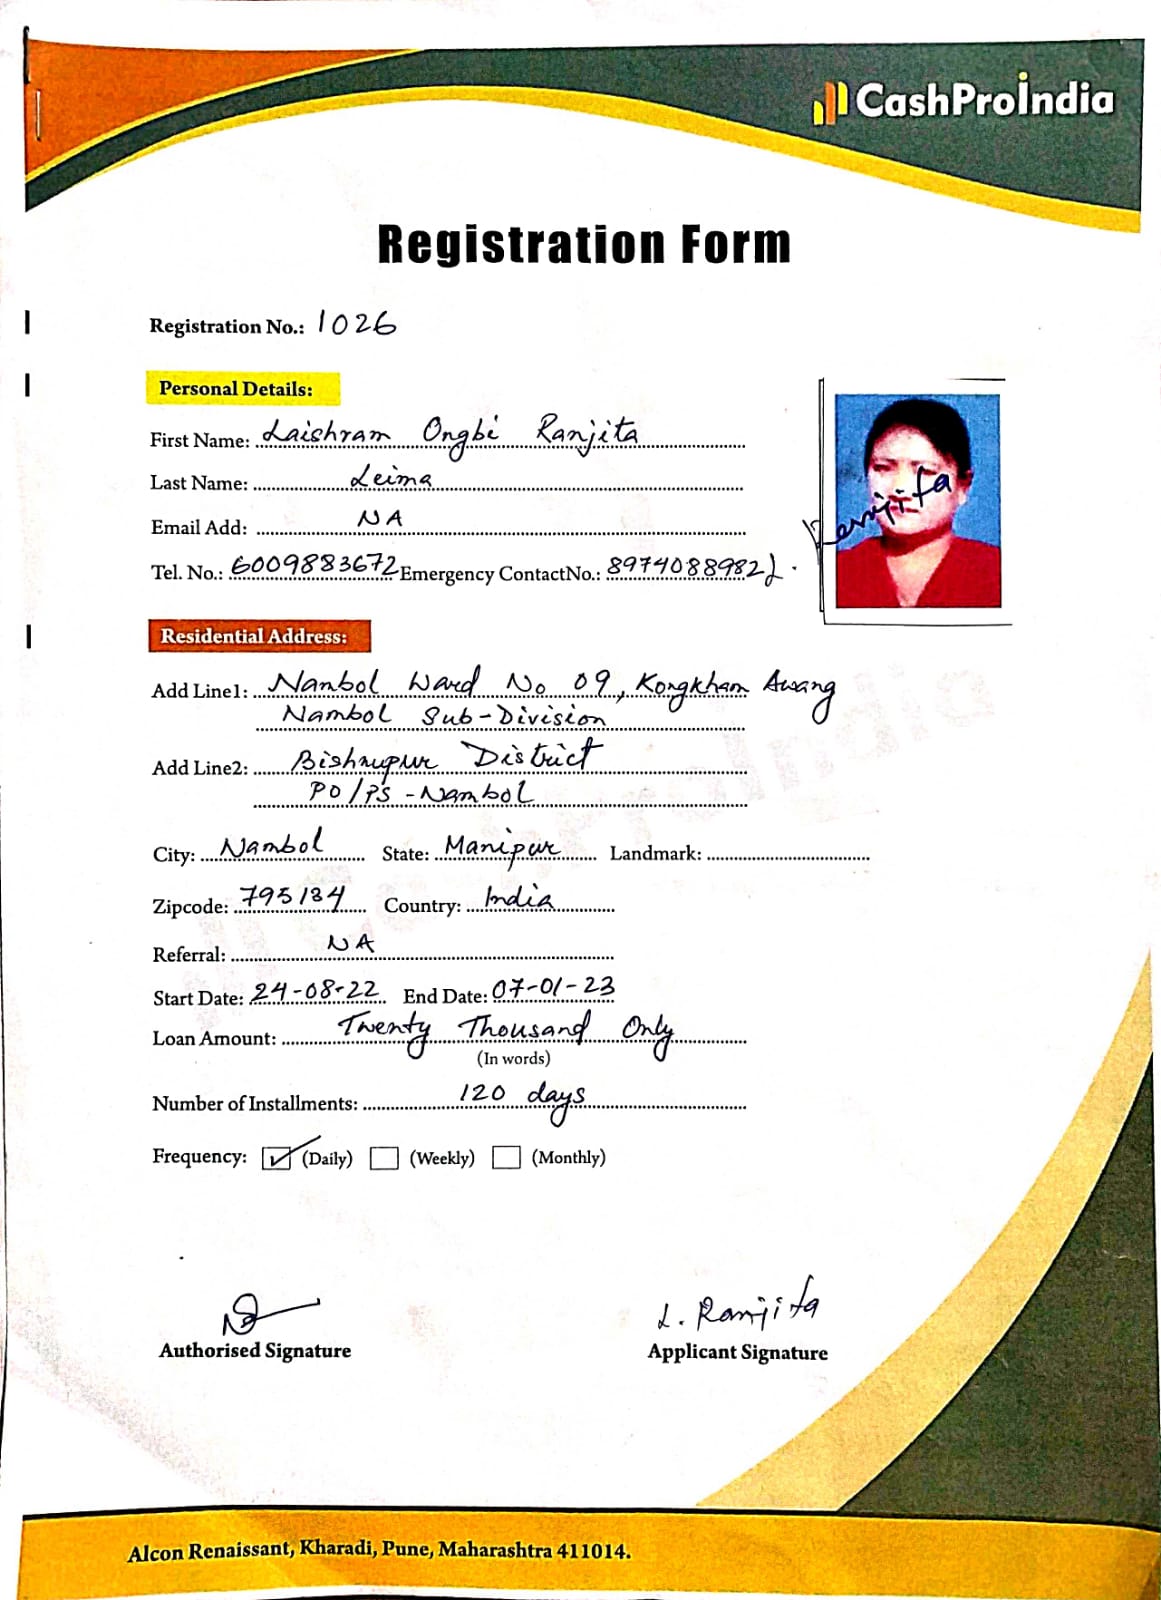 CashProIndia
Registration Form
Registration No.: 1026
Personal Details:
First Name: Laishram Ongbi Ranjita
Last Name: Leima
Email Add: NA
Tel. No.: 6009883672 Emergency ContactNo.: 8974088982
L. Ranjita
Residential Address:
Add Line1: Nambol Ward No 09, Kongkham Awang
Nambol Sub-Division
Add Line2: Bishnupur District
PO/PS - Nambol
City: Nambol State: Manipur Landmark:
Zipcode: 795134 Country: India
Referral: NA
Start Date: 24-08-22 End Date: 07-01-23
Loan Amount: Twenty Thousand Only
(In words)
Number of Installments: 120 days
Frequency: (Daily) (Weekly) (Monthly)
L. Ranjita
Authorised Signature Applicant Signature
Alcon Renaissant, Kharadi, Pune, Maharashtra 411014.